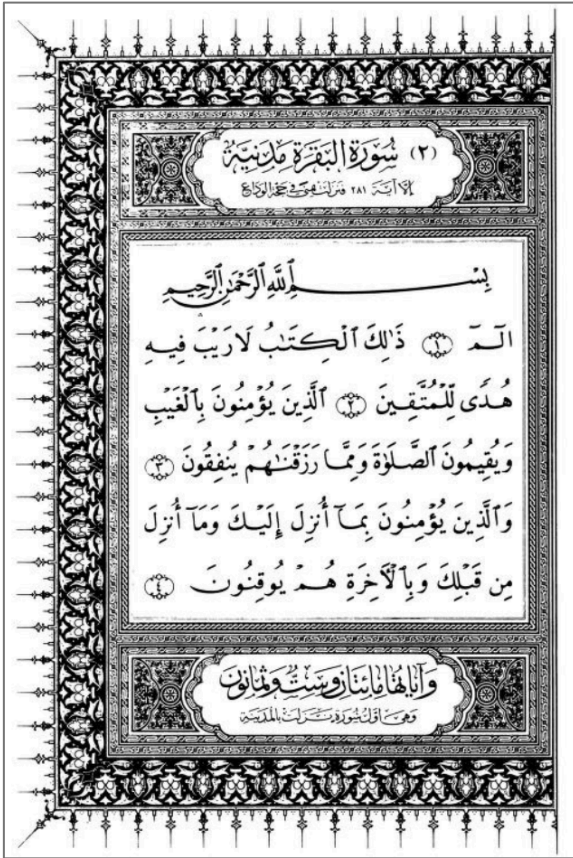 (٢) سُورَةُ البَقَرَةِ مَدَنِيَّة
إلا آية ٢٨١ فنزلت بمنى في حجة الوداع
بِسْمِ ٱللَّهِ ٱلرَّحْمَٰنِ ٱلرَّحِيمِ
الٓمٓ ١ ذَٰلِكَ ٱلْكِتَٰبُ لَا رَيْبَ فِيهِ
هُدًى لِّلْمُتَّقِينَ ٢ ٱلَّذِينَ يُؤْمِنُونَ بِٱلْغَيْبِ
وَيُقِيمُونَ ٱلصَّلَوٰةَ وَمِمَّا رَزَقْنَٰهُمْ يُنفِقُونَ ٣
وَٱلَّذِينَ يُؤْمِنُونَ بِمَآ أُنزِلَ إِلَيْكَ وَمَآ أُنزِلَ
مِن قَبْلِكَ وَبِٱلْءَاخِرَةِ هُمْ يُوقِنُونَ ٤
وآياتها مائتان وست وثمانون
وهي أول سورة نزلت بالمدينة